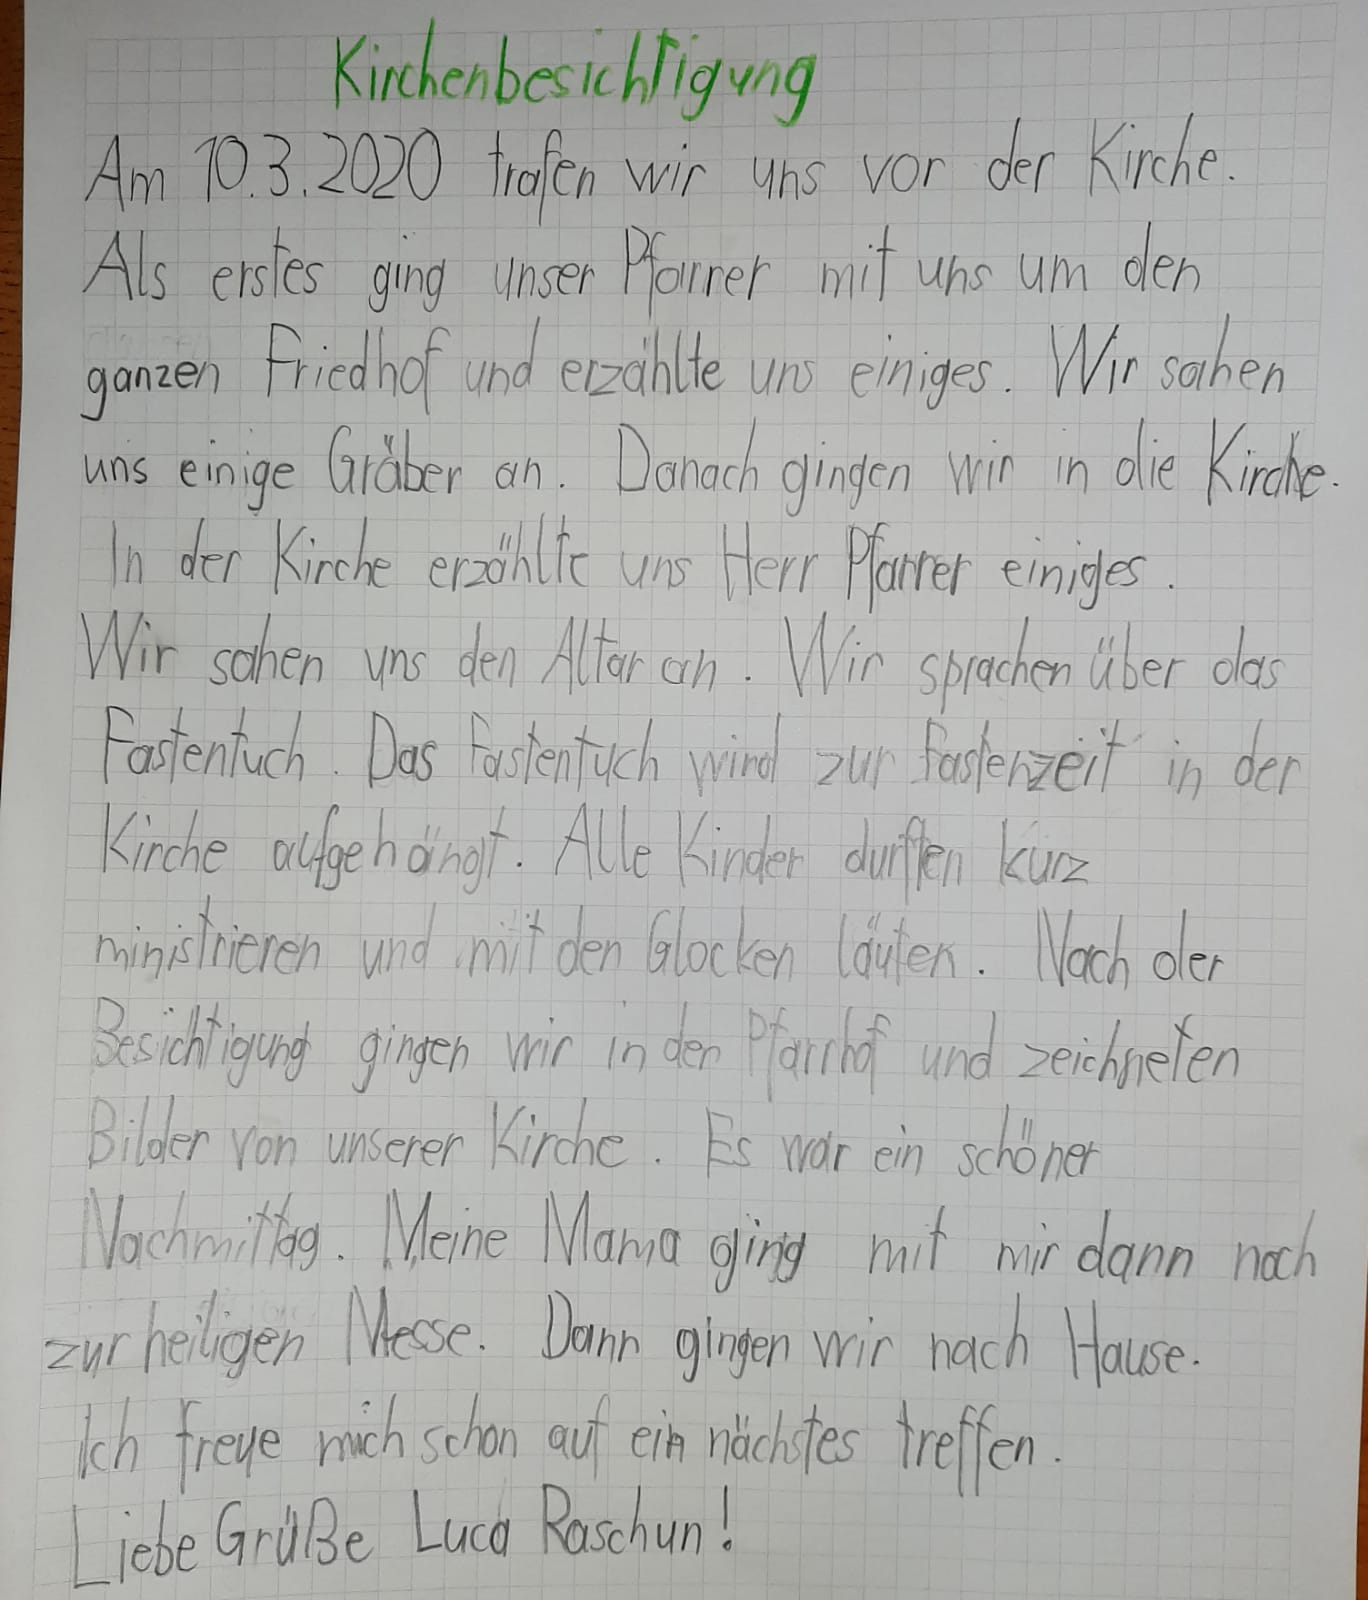 Kirchenbesichtigung
Am 10.3.2020 trafen wir uns vor der Kirche.
Als erstes ging unser Pfarrer mit uns um den
ganzen Friedhof und erzählte uns einiges. Wir sahen
uns einige Gräber an. Danach gingen wir in die Kirche.
In der Kirche erzählte uns Herr Pfarrer einiges.
Wir sahen uns den Altar an. Wir sprachen über das
Fastentuch. Das Fastentuch wird zur Fastenzeit in der
Kirche aufgehängt. Alle Kinder durften kurz
ministrieren und mit den Glocken läuten. Nach der
Besichtigung gingen wir in den Pfarrhof und zeichneten
Bilder von unserer Kirche. Es war ein schöner
Nachmittag. Meine Mama ging mit mir dann noch
zur heiligen Messe. Dann gingen wir nach Hause.
Ich freue mich schon auf ein nächstes treffen.
Liebe Grüße Luca Raschun!